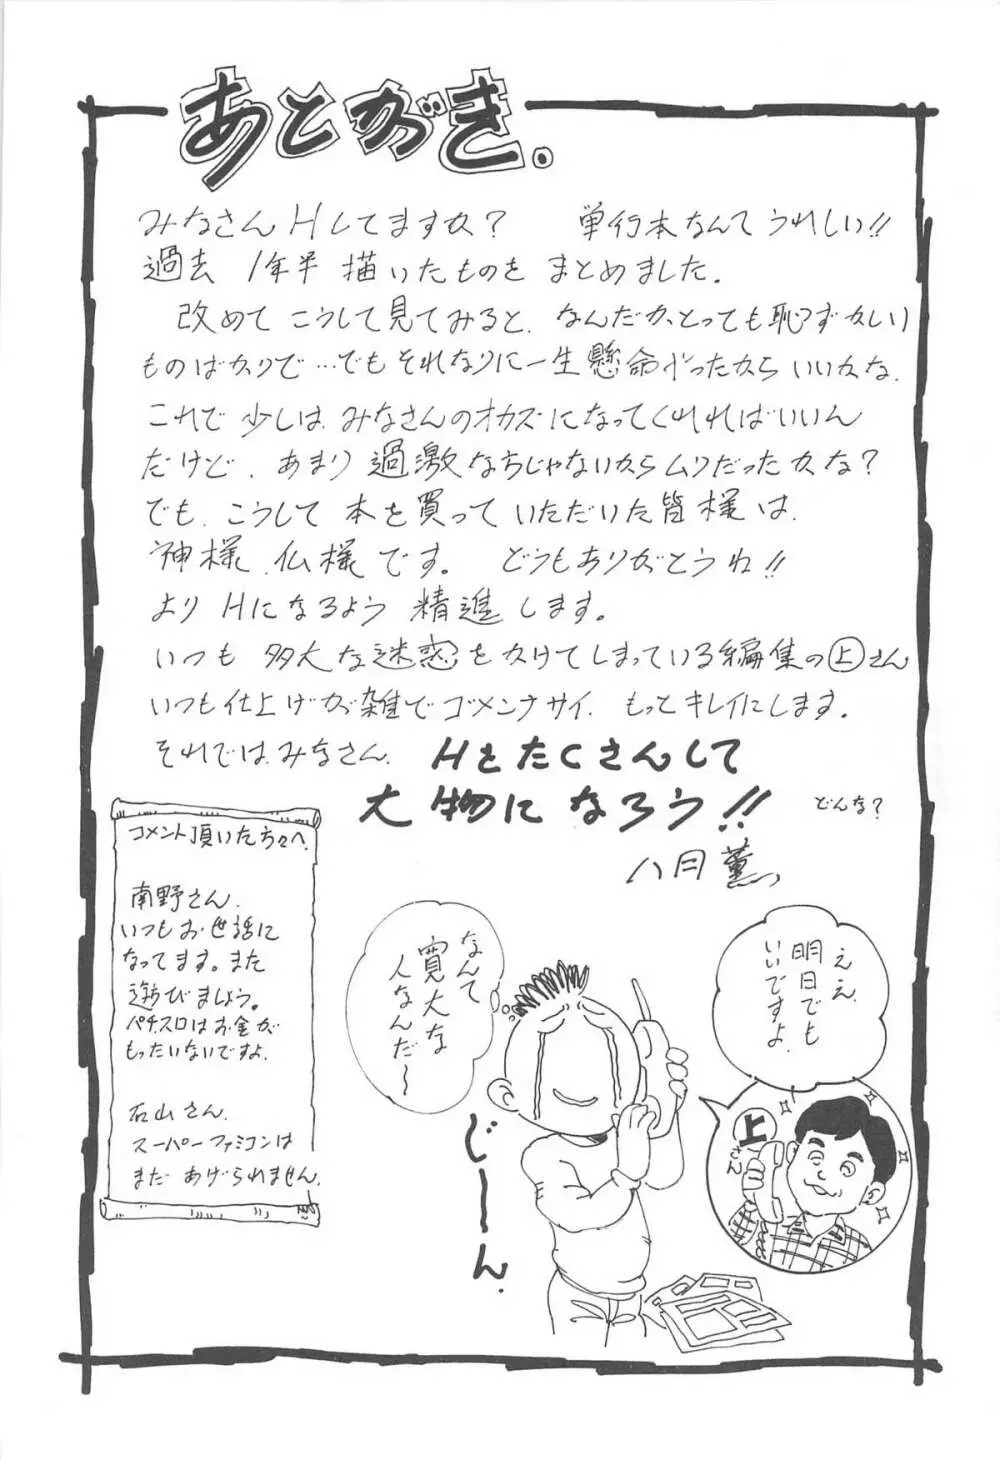 あとがき.
みなさんHしてますか? 単行本なんてうれしい!!
過去 1年半 描いたものを まとめました.
改めて こうして見てみると. なんだか、とっても恥ずかしい
ものばかりで…でも それなりに一生懸命だったから いいかな.
これで 少しは みなさんのオカズになってくれればいいん
だけど. あまり 過激な方じゃないからムリだったかな?
でも. こうして 本を買って いただいた皆様は.
神様.仏様です。 どうもありがとうね!!
より Hになるよう 精進します。
いつも 多大な迷惑を かけてしまっている編集の上さん
いつも仕上げが雑でゴメンナサイ. もっとキレイにします.
それでは みなさん. Hをたくさんして
大物になろう!! どんな?
八月薫
コメント頂いた方々へ.
南野さん.
いつもお世話に
なってます。また
遊びましょう。
パチスロはお金が
もったいないですよ.
石山さん.
スーパーファミコンは
まだ あげられません.
ええ.
明日でも
いいですよ.
なんて
寛大な
人なんだ〜
じーーん.
上さん